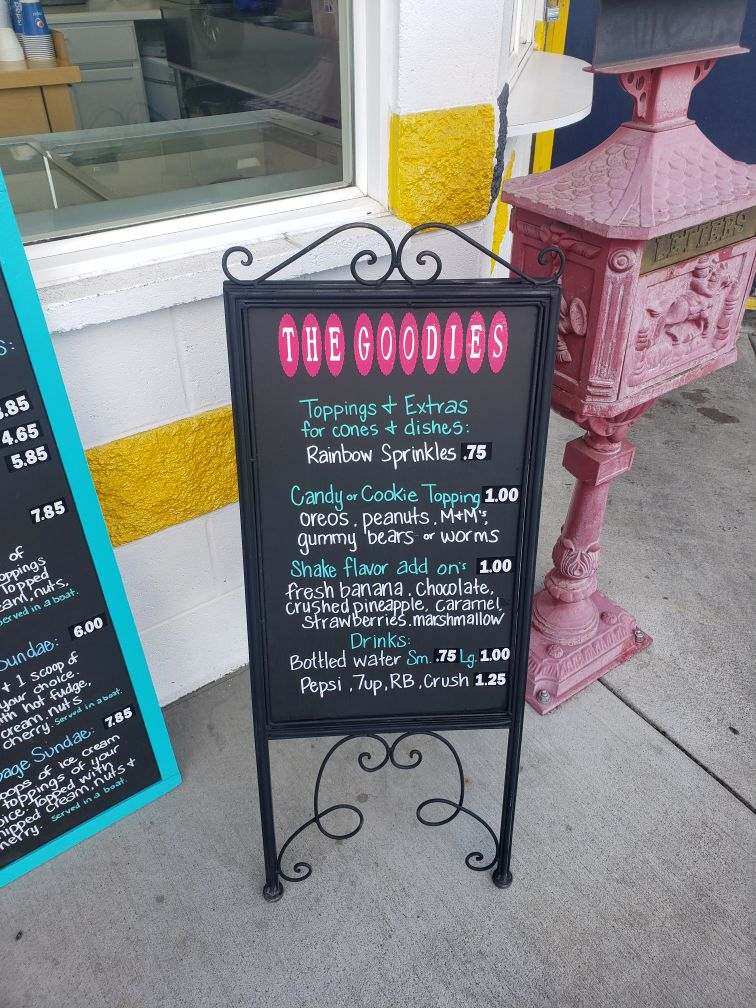 THE GOODIES
Toppings & Extras
for cones & dishes:
Rainbow Sprinkles .75
Candy or Cookie Topping 1.00
oreos, peanuts, M&M's,
gummy bears or worms
Shake flavor add on's 1.00
fresh banana, chocolate,
crushed pineapple, caramel,
strawberries, marshmallow
Drinks:
Bottled water Sm. .75 Lg. 1.00
Pepsi, 7up, RB, Crush 1.25
LETTERS
S:
.85
4.65
5.85
7.85
of
Topped
nuts.
Served in a boat.
Sundae: 6.00
+ 1 scoop of
your choice.
with hot fudge,
cream, nuts
cherry. Served in a boat.
Sundae: 7.85
of ice cream
toppings of your
Topped with
whipped cream, nuts +
cherry. Served in a boat.